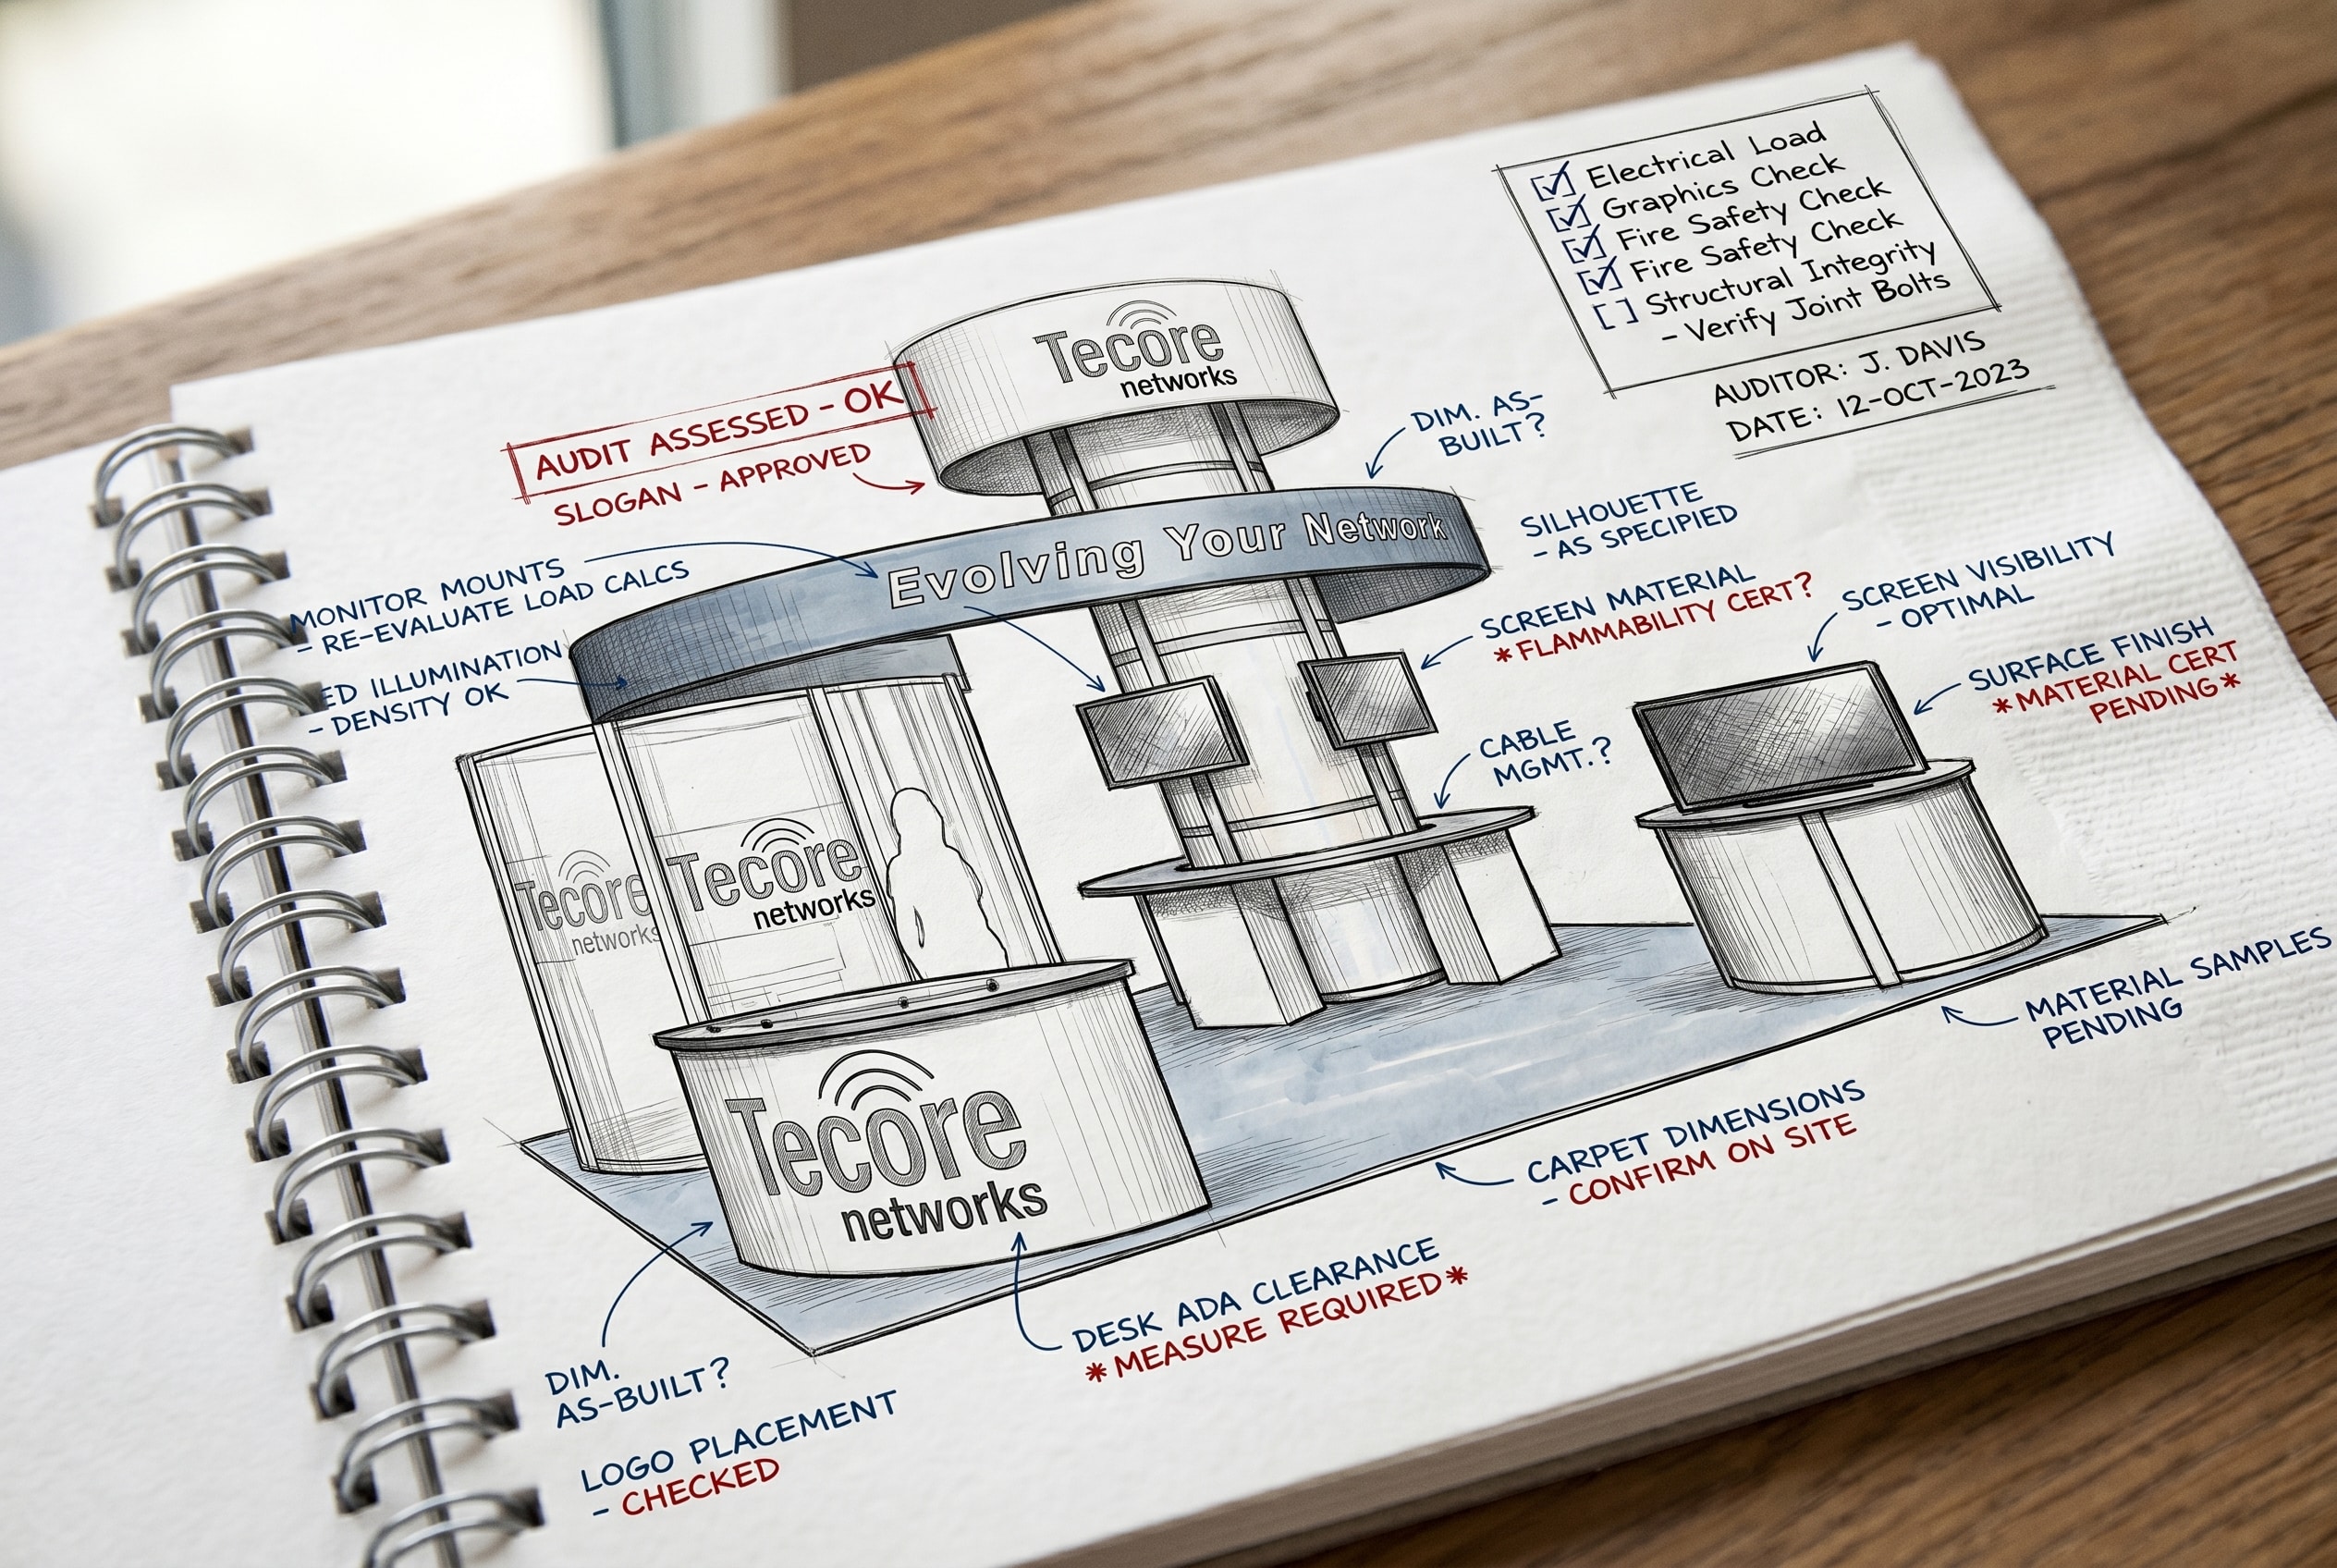 [✓] Electrical Load
[✓] Graphics Check
[✓] Fire Safety Check
[✓] Fire Safety Check
[ ] Structural Integrity
- Verify Joint Bolts
AUDITOR: J. DAVIS
DATE: 12-OCT-2023
Tecore
networks
AUDIT ASSESSED - OK
SLOGAN - APPROVED
DIM. AS-
BUILT?
Evolving Your Network
SILHOUETTE
- AS SPECIPIED
MONITOR MOUNTS
- RE-EVALUATE LOAD CALCS
SCREEN MATERIAL
*FLAMMABILITY CERT?
SCREEN VISIBILITY
- OPTIMAL
ED ILLUMINATION
- DENSITY OK
SURFACE FINISH
*MATERIAL CERT
PENDING*
CABLE
MGMT.?
Tecore
networks
Tecore
networks
MATERIAL SAMPLES
PENDING
Tecore
networks
CARPET DIMENSIONS
- CONFIRM ON SITE
DESK ADA CLEARANCE
*MEASURE REQUIRED*
DIM.
AS-BUILT?
LOGO PLACEMENT
- CHECKED